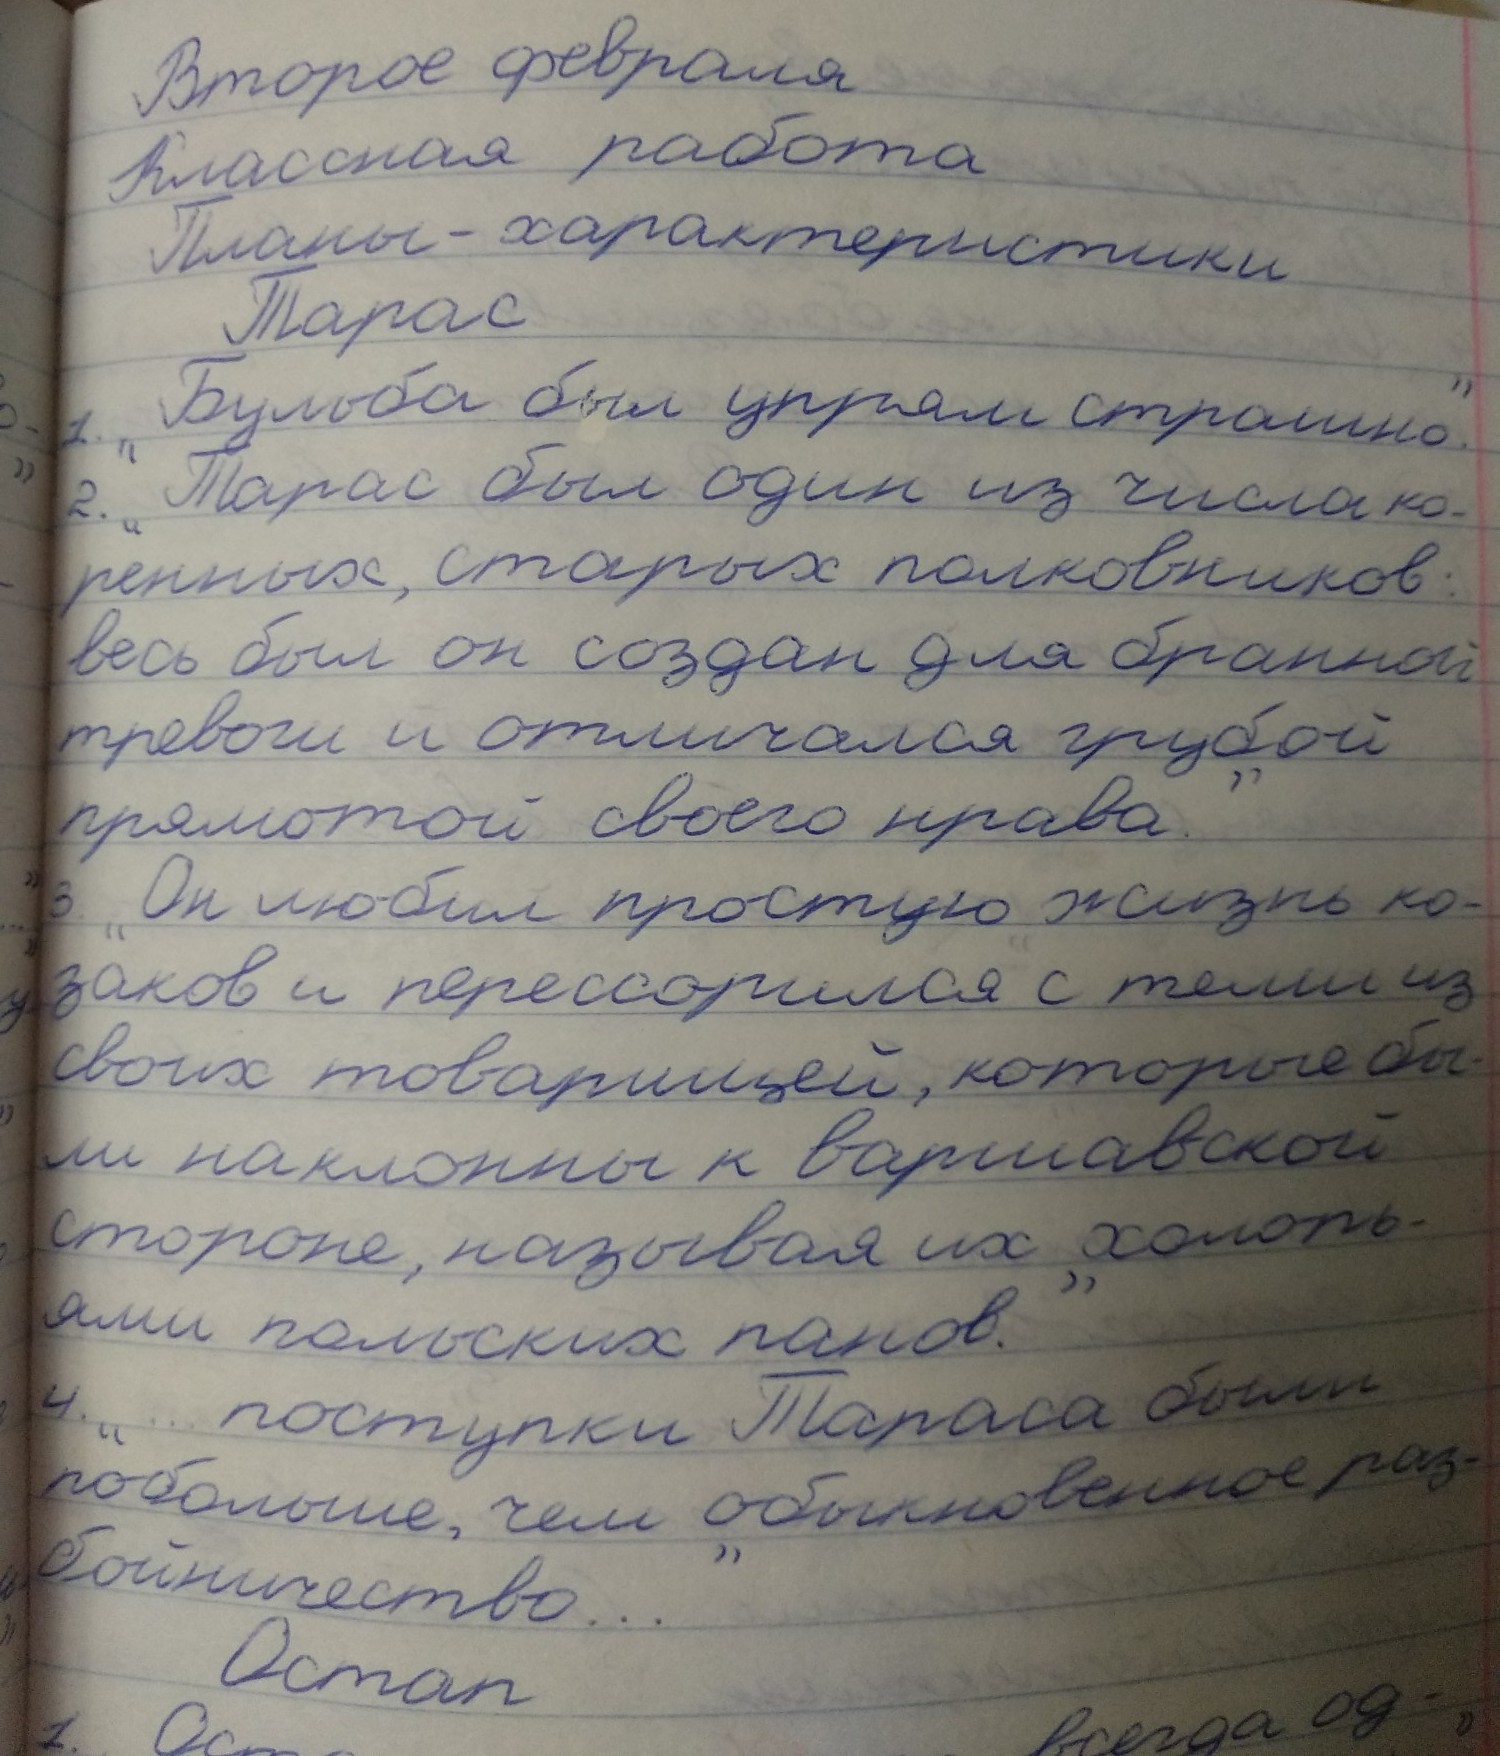 Второе февраля
Классная работа
Планы-характеристики
Тарас
1. „Бульба был упрям страшно.”
2. „Тарас был один из числа ко-
ренных, старых полковников:
весь был он создан для бранной
тревоги и отличался грубой
прямотой своего нрава.”
3. „Он любил простую жизнь ко-
заков и перессорился с теми из
своих товарищей, которые бы-
ли наклонны к варшавской
стороне, называя их „холопь-
ями польских панов.”
4. „... поступки Тараса были
побольше, чем обыкновенное раз-
бойничество...”
Остап
1. всегда од-